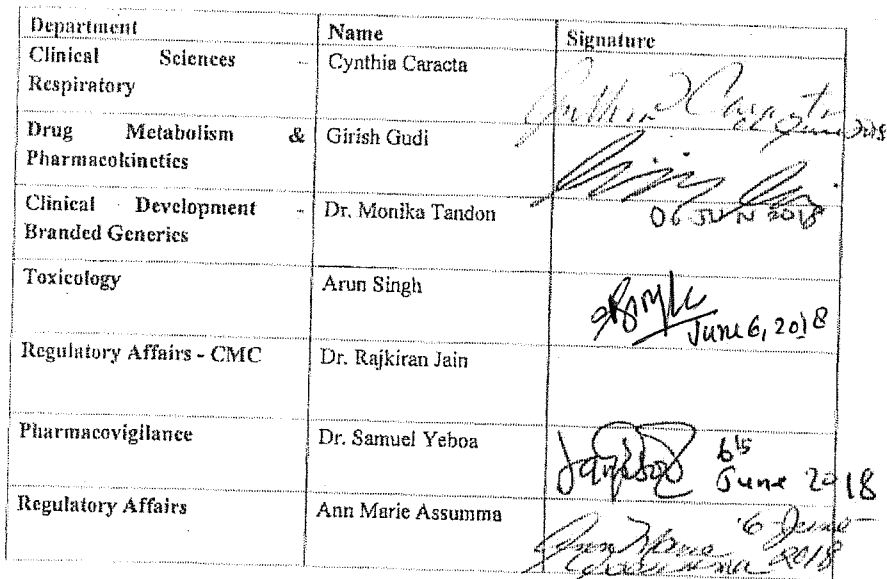 Department Name Signature
Clinical Sciences -
Respiratory
Cynthia Caracta
Cynthia Caracta
June 2018
Drug Metabolism &
Pharmacokinetics
Girish Gudi
06 JUN 2018
Clinical Development -
Branded Generics
Dr. Monika Tandon
Toxicology
Arun Singh
June 6, 2018
Regulatory Affairs - CMC
Dr. Rajkiran Jain
Pharmacovigilance
Dr. Samuel Yeboa
June 2018
Regulatory Affairs
Ann Marie Assumma
6 June
2018
Ann Marie
Assumma